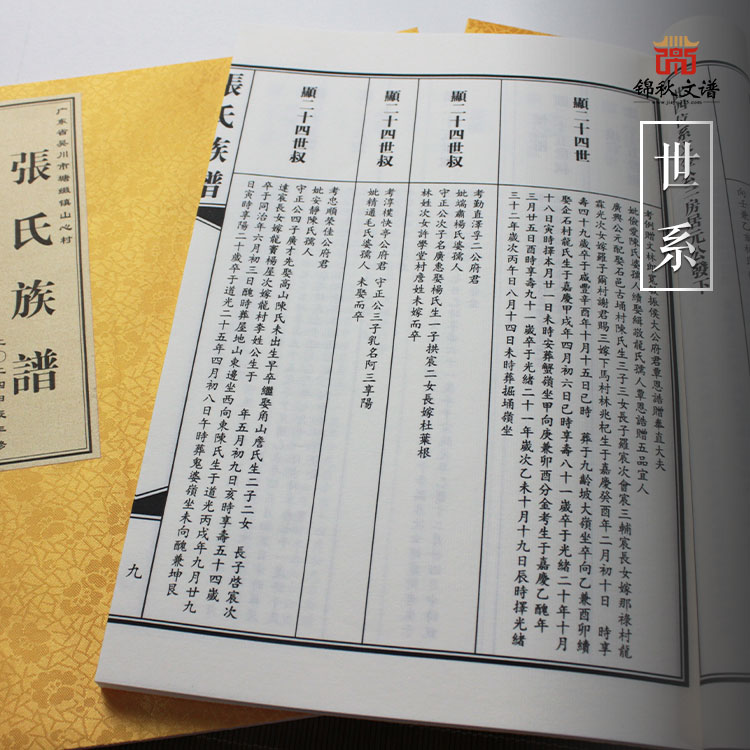 锦秋文谱
世系
广东省吴川市塘㙍镇山心村
張氏族譜
顯二十四世
考例贈文林郎
振侯大公府君覃恩誥贈奉直大夫
妣儉愛陳氏婆孺人續娶緝敬龍氏孺人覃恩誥贈五品宜人
廣興公元配娶石邑古埇村陳氏生三子三女長子羅宸次會宸三輔宸長女嫁那祿村龍
霖光次女嫁羅子爾村謝君賜三嫁下馬村林兆杞生于嘉慶癸酉年二月初十日 時享
壽四十九歲卒于咸豊辛酉年十月十五日己時 葬于九齡坡大嶺坐卒向乙兼酉卯續
娶企石村龍氏生于嘉慶甲戌年四月初六日己時享壽八十一歲卒于光緒二十年十月
十八日寅時擇本月廿一日未時安葬蟹嶺坐甲向庚兼卯酉分金考生于嘉慶乙醜年
三月廿五日酉時享壽九十一歲卒于光緒二十一年歲次乙未十月十九日辰時擇光緒
三十二年歲次丙午日八月十四日未時葬掘埇嶺坐
顯二十四世叔
考勤直澤孚二公府君
妣端肅楊氏婆孺人
守正公次子名廣惠娶楊氏生一子拱宸二女長嫁杜葉根
林姓次女許學堂村詹姓未嫁而卒
顯二十四世叔
考淳樸快亭公府君 守正公三子乳名阿三享陽
妣精通毛氏婆孺人 未娶而卒
顯二十四世叔
考忠順瑩佳公府君
妣安靜陳氏孺人
守正公四子廣才先娶高山陳氏未出生早卒繼娶角山詹氏生二子二女 長子啓宸次
達宸長女嫁龍竇楊星次嫁龍村李姓公生于 年五月初九日亥時享壽五十四歲
卒于同治年六月初三日醜時葬屋地山東邊坐西向東陳氏生于道光丙戌年九月廿九
日寅時享陽二十歲卒于道光二十五年四月初八日午時葬鬼婆嶺坐未向醜兼坤艮
張氏族譜
九